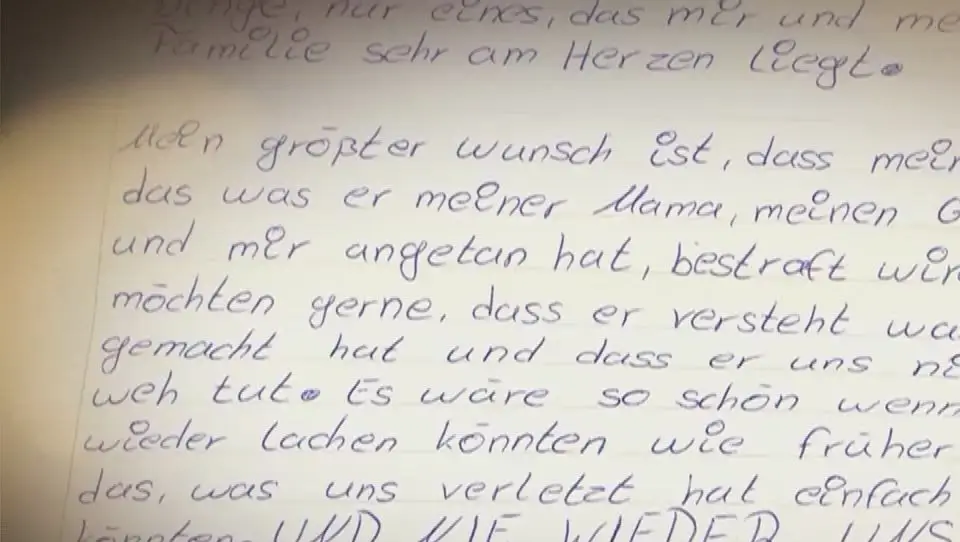 nur eines, das mir und
Familie sehr am Herzen liegt.
Mein größter wunsch ist, dass
das was er meiner Mama, meinen
und mir angetan hat, bestraft
möchten gerne, dass er versteht
gemacht hat und dass er uns
weh tut. Es wäre so schön wenn
wieder lachen könnten wie früher
das, was uns verletzt hat einfach
könnten. UND NIE WIEDER UNS